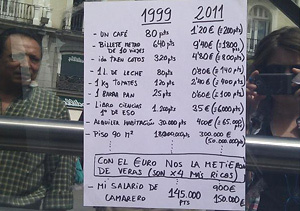 1999 2011
- UN CAFÉ 80 pts 1'20 € (≈200 pts)
- BILLETE METRO DE 10 VIAJES 640 pts 9'40 € (≈1.800 pts)
- ida TREN CERCAS 320 pts 4'80 € (≈800 pts)
- 1 L. DE LECHE 80 pts 0'80 € (≈140 pts)
- 1 Kg TOMATES 120 pts 2'40 € (≈400 pts)
- 1 BARRA PAN 25 pts 0'60 € (≈100 pts)
- LIBRO CIENCIAS 1º DE ESO 1.200 pts 35 € (≈6.000 pts)
- ALQUILER HABITACIÓN 30.000 pts 400 € (≈65.000 pts)
- PISO 90 M² 300.000 € (50.000.000 pts)
CON EL €URO NOS LA METIERON
DE VERAS (SON x4 MÁS RICOS)
- MI SALARIO DE CAMARERO 145.000 pts 900 € 150.000